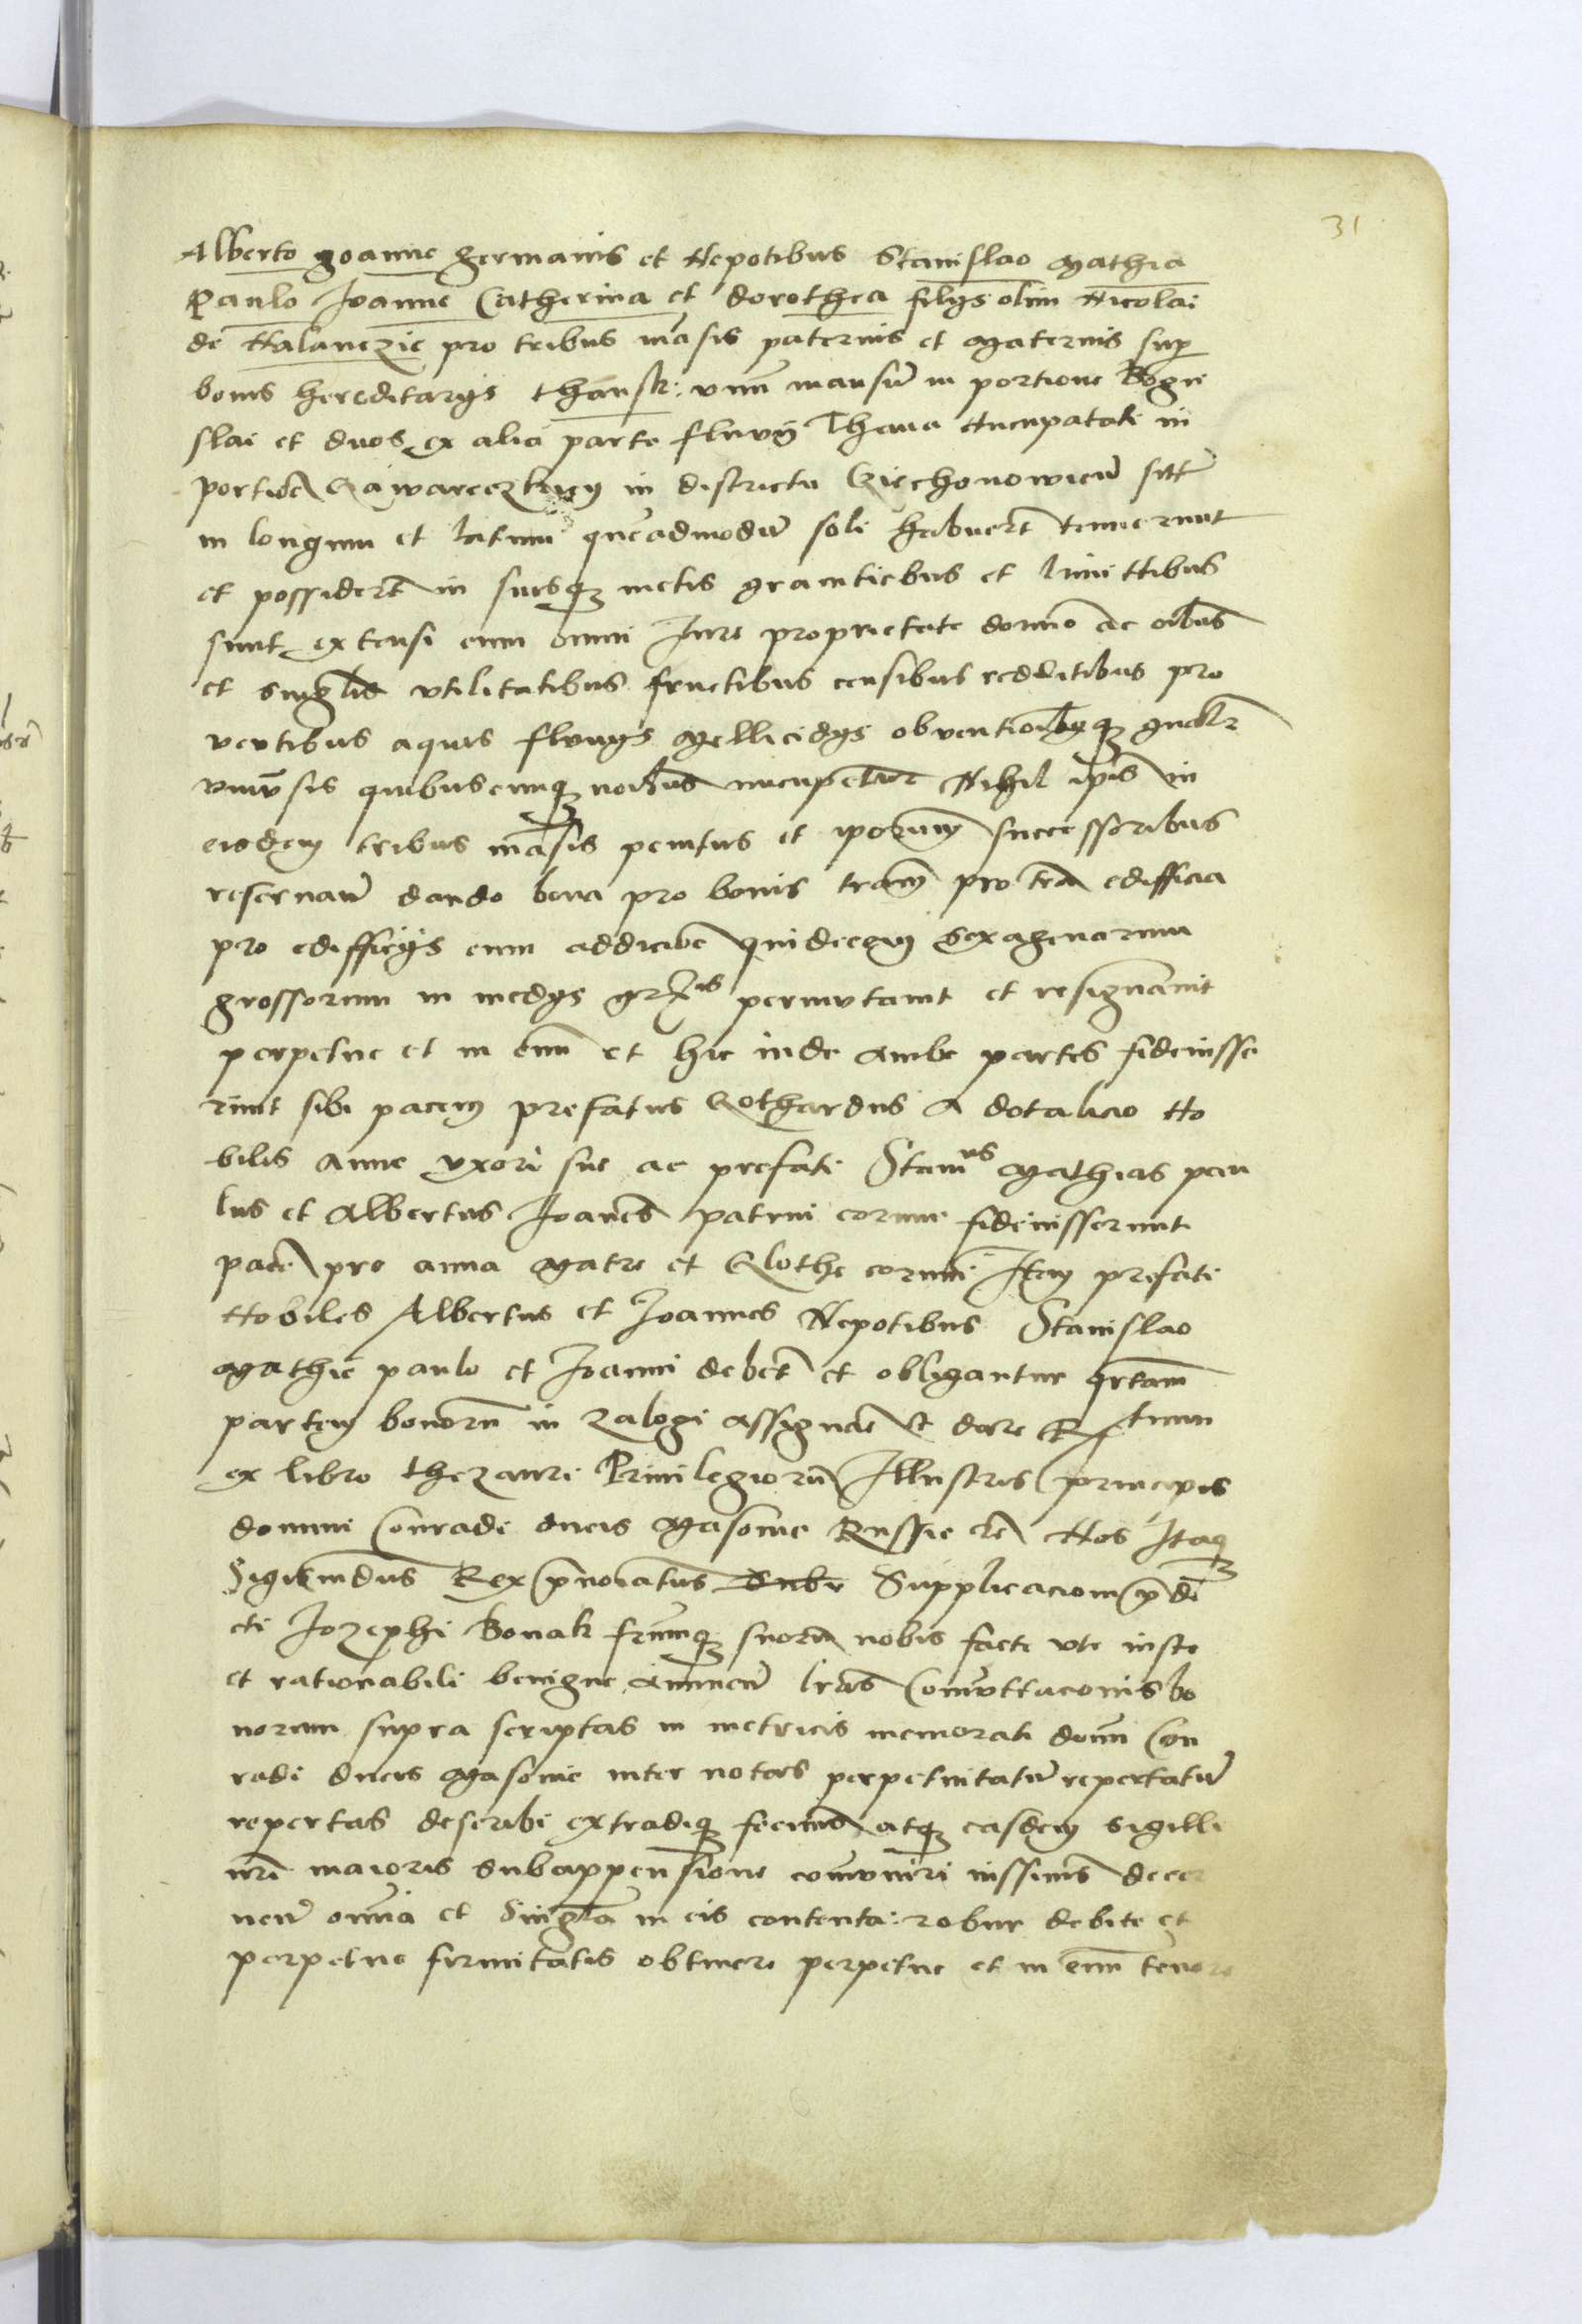 31
Alberto Joanne germanis et Nepotibus Stanislao Mathia
Paulo Joanne Catherina et dorothea filijs olim Nicolai
de Nalanczie pro tribus māsis paternis et Maternis sup
bonis hereditarijs thansk: vnū mansū in portione Bogu
slai et duos ex alia parte fluvij Thena Nucupatati in
portiōe in districtu Czirchonowieñ sitt
in longum et latum quēadmodū soli habuerūt tenuerunt
et possiderūt in suisq̄ metis graniciebus et limittibus
sunt extensi cum omni Jure proprietate domīo ac oībus
et singlis vtilitatibus fructibus censibus redditibus pro
ventibus aquis fluuijs Mellicidijs obventioībusq̄ gnalr
vniu̅sis quibuscumq̄ noībus nucupētur Nihil ipīs in
eisdem tribus māsis penitus et ipōrum successoribus
reseruañ dando bona pro bonis terrām pro terrā edifficia
pro edifficijs cum addiciōe quīdecem sexagenarum
grossorum in medijs grossis permvtauit et resignauit
perpetue et in euū et hic inde ambe partes fideiusse
runt sibi pacem prefatus Gothardus A dotalicio No
bilis Anne vxori sue ac prefati Stanius Mathias pau
lus et Albertus Joanēs patrui eorum fideiusserunt
pacē pro anna Matre et Clothe eorum Item prefati
Nobiles Albertus et Joannes Nepotibus Stanislao
Mathie paulo et Joanni debēt et obligantur qrtam
partem bonorū in Zalogi assignāe et dare Rptum
ex libro thezauri Priuilegiorū Illustris principis
domini Conradi ducis Masouie Russie etc Nos Itaq̄
Sigismūdus Rex p̄noīatus Subr Supplicaciom p̄di
cti Jozephi Bonak frūmq̄ suorū nobis facte vte iuste
et rationabili benigne annueñ lrās Comvttaconis bo
norum supra scriptas in metricis memorati domī Con
radi ducis Masouie inter notas perpetuitatū repertatū
repertas describi extradiq̄ fecimus atq̄ easdem sigilli
nrī maioris subappensione comvniri iussimus decer
neñ om̄ia et Singlā in eis contenta: robur debite et
perpetue firmitatis obtinere perpetue et in euū tenore